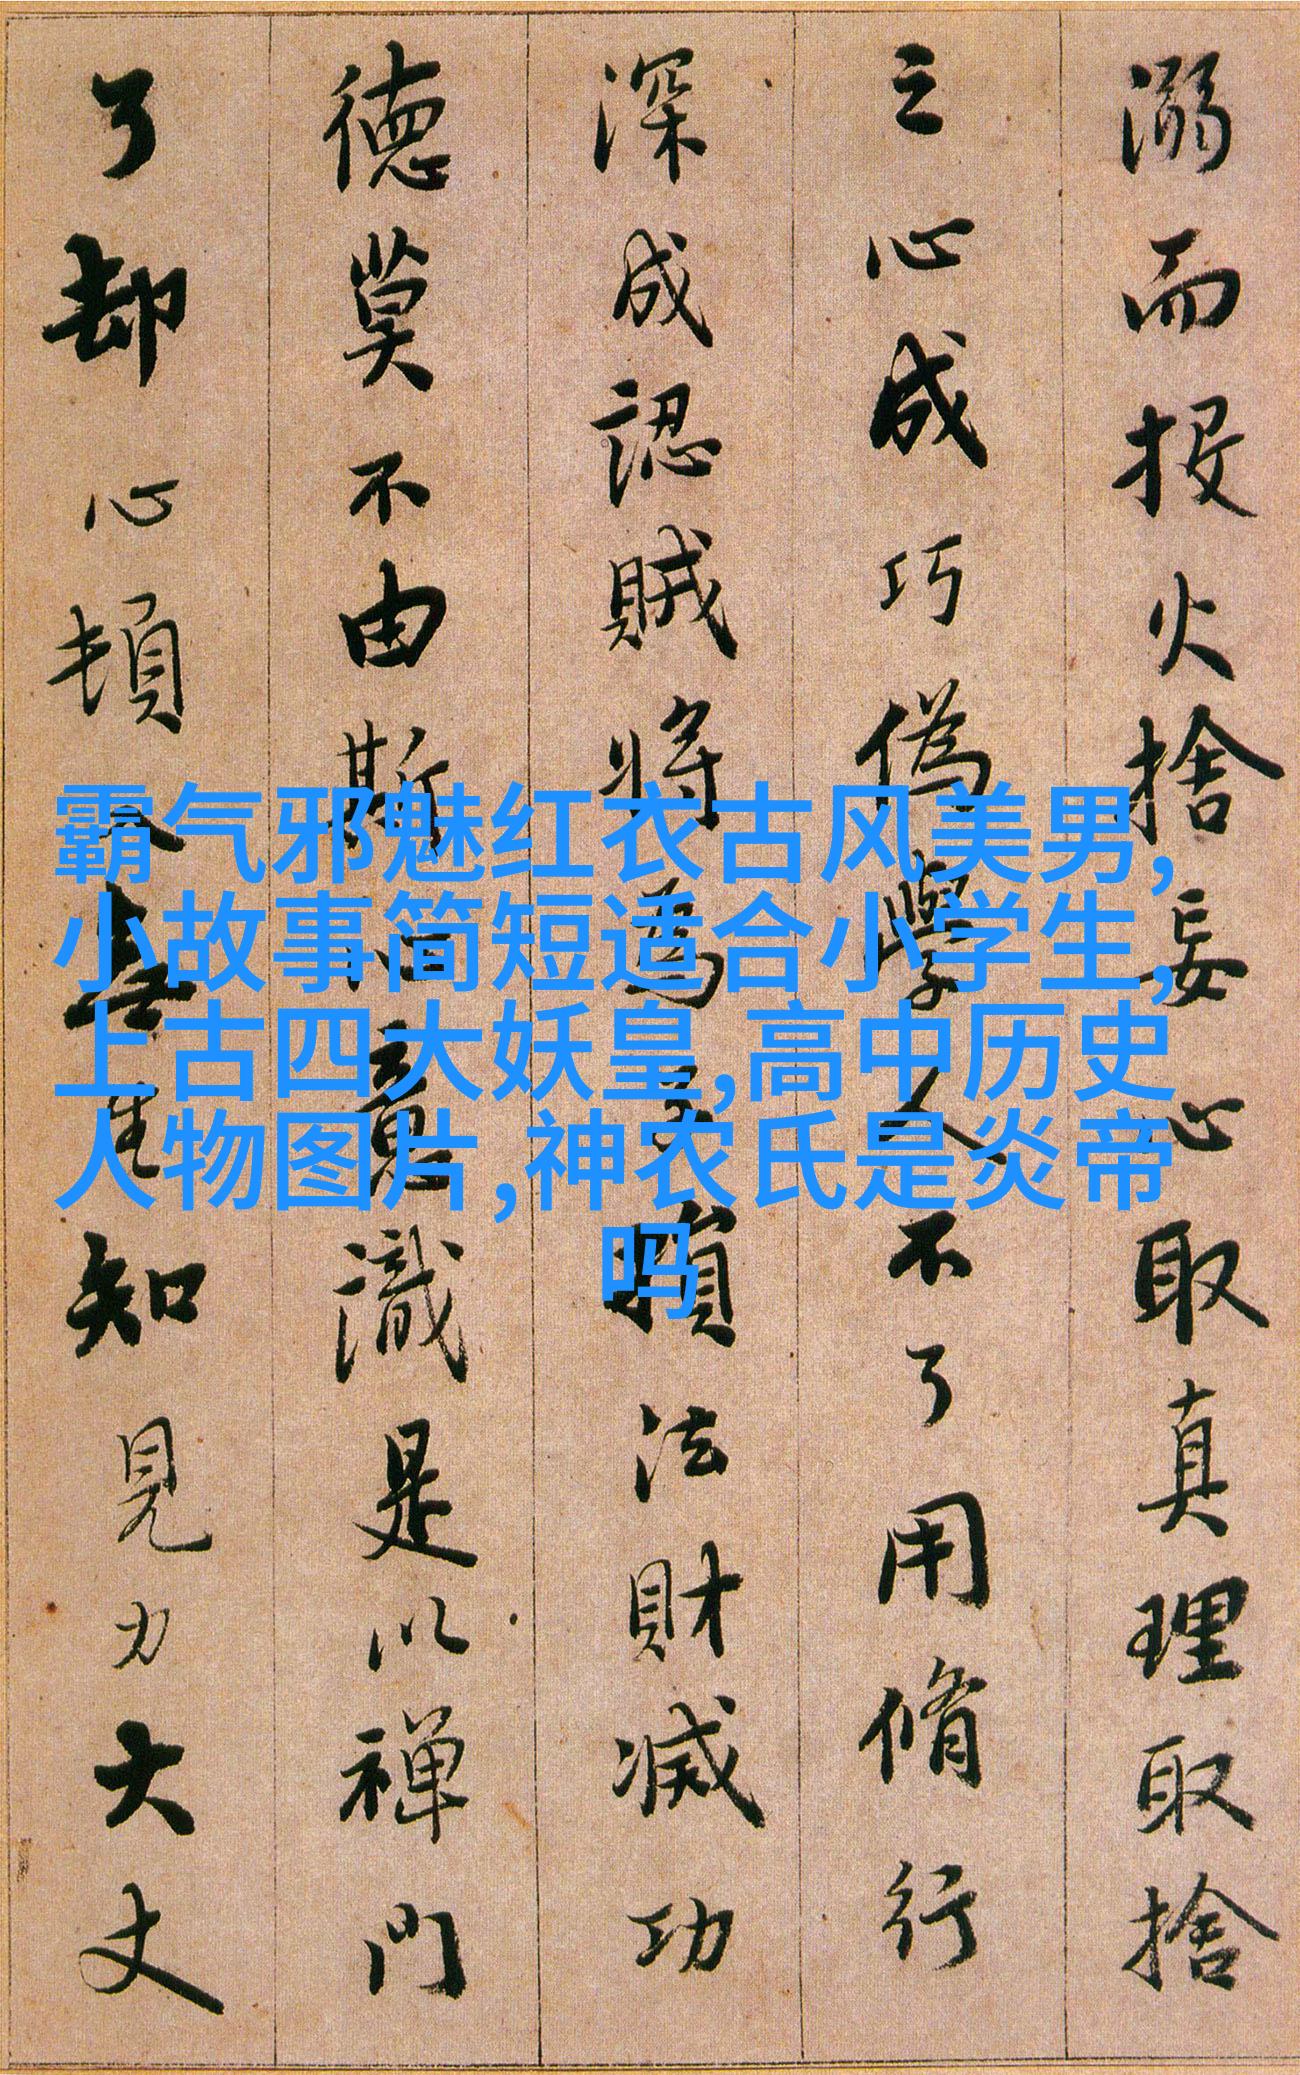 溺而投火捨妄心取真理取捨
之心成巧偽學人不了用脩行
深成認賊將為子損法財滅功
德莫不由斯心意識是以禪門
了却心頓入無生知見力大丈
霸气邪魅红衣古风美男,
小故事简短适合小学生,
上古四大妖皇,高中历史
人物图片,神农氏是炎帝
吗